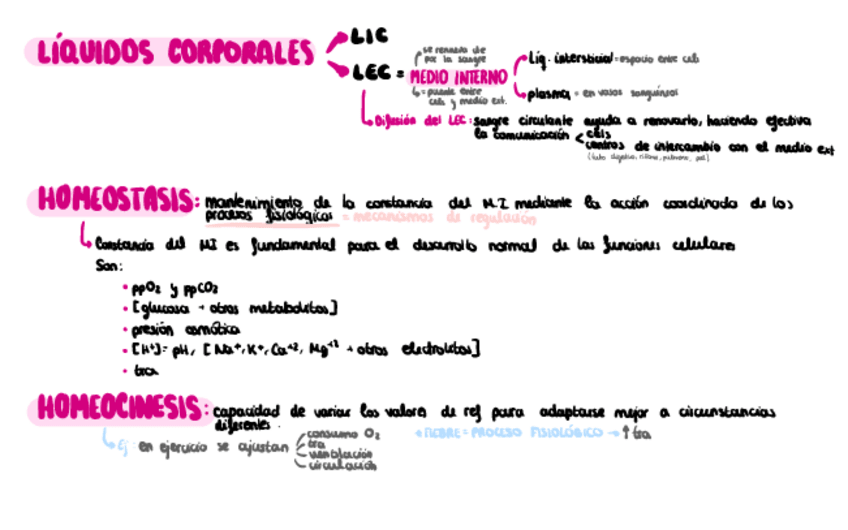 LÍQUIDOS CORPORALES
LIC
LEC = MEDIO INTERNO
se renueva
por la sangre
= puente entre
cels y medio ext.
Líq. intersticial = espacio entre cels
plasma = en vasos sanguíneos
Difusión del LEC: sangre circulante ayuda a renovarlo, haciendo efectiva
la comunicación
cels
centros de intercambio con el medio ext
(tubo digestivo, riñones, pulmones, piel)
HOMEOSTASIS: mantenimiento de la constancia del M.I mediante la acción coordinada de los
procesos fisiológicos = mecanismos de regulación
Constancia del MI es fundamental para el desarrollo normal de las funciones celulares
Son:
• ppO₂ y ppCO₂
• [glucosa + otros metabolitos]
• presión osmótica
• [H+]= pH, [Na+, K+, Ca+2, Mg+2 + otros electrolitos]
• tra
HOMEOCINESIS: capacidad de variar los valores de ref para adaptarse mejor a circunstancias
diferentes.
Ej: en ejercicio se ajustan
consumo O₂
tra
ventilación
circulación
FIEBRE = PROCESO FISIOLÓGICO → ↑ tra